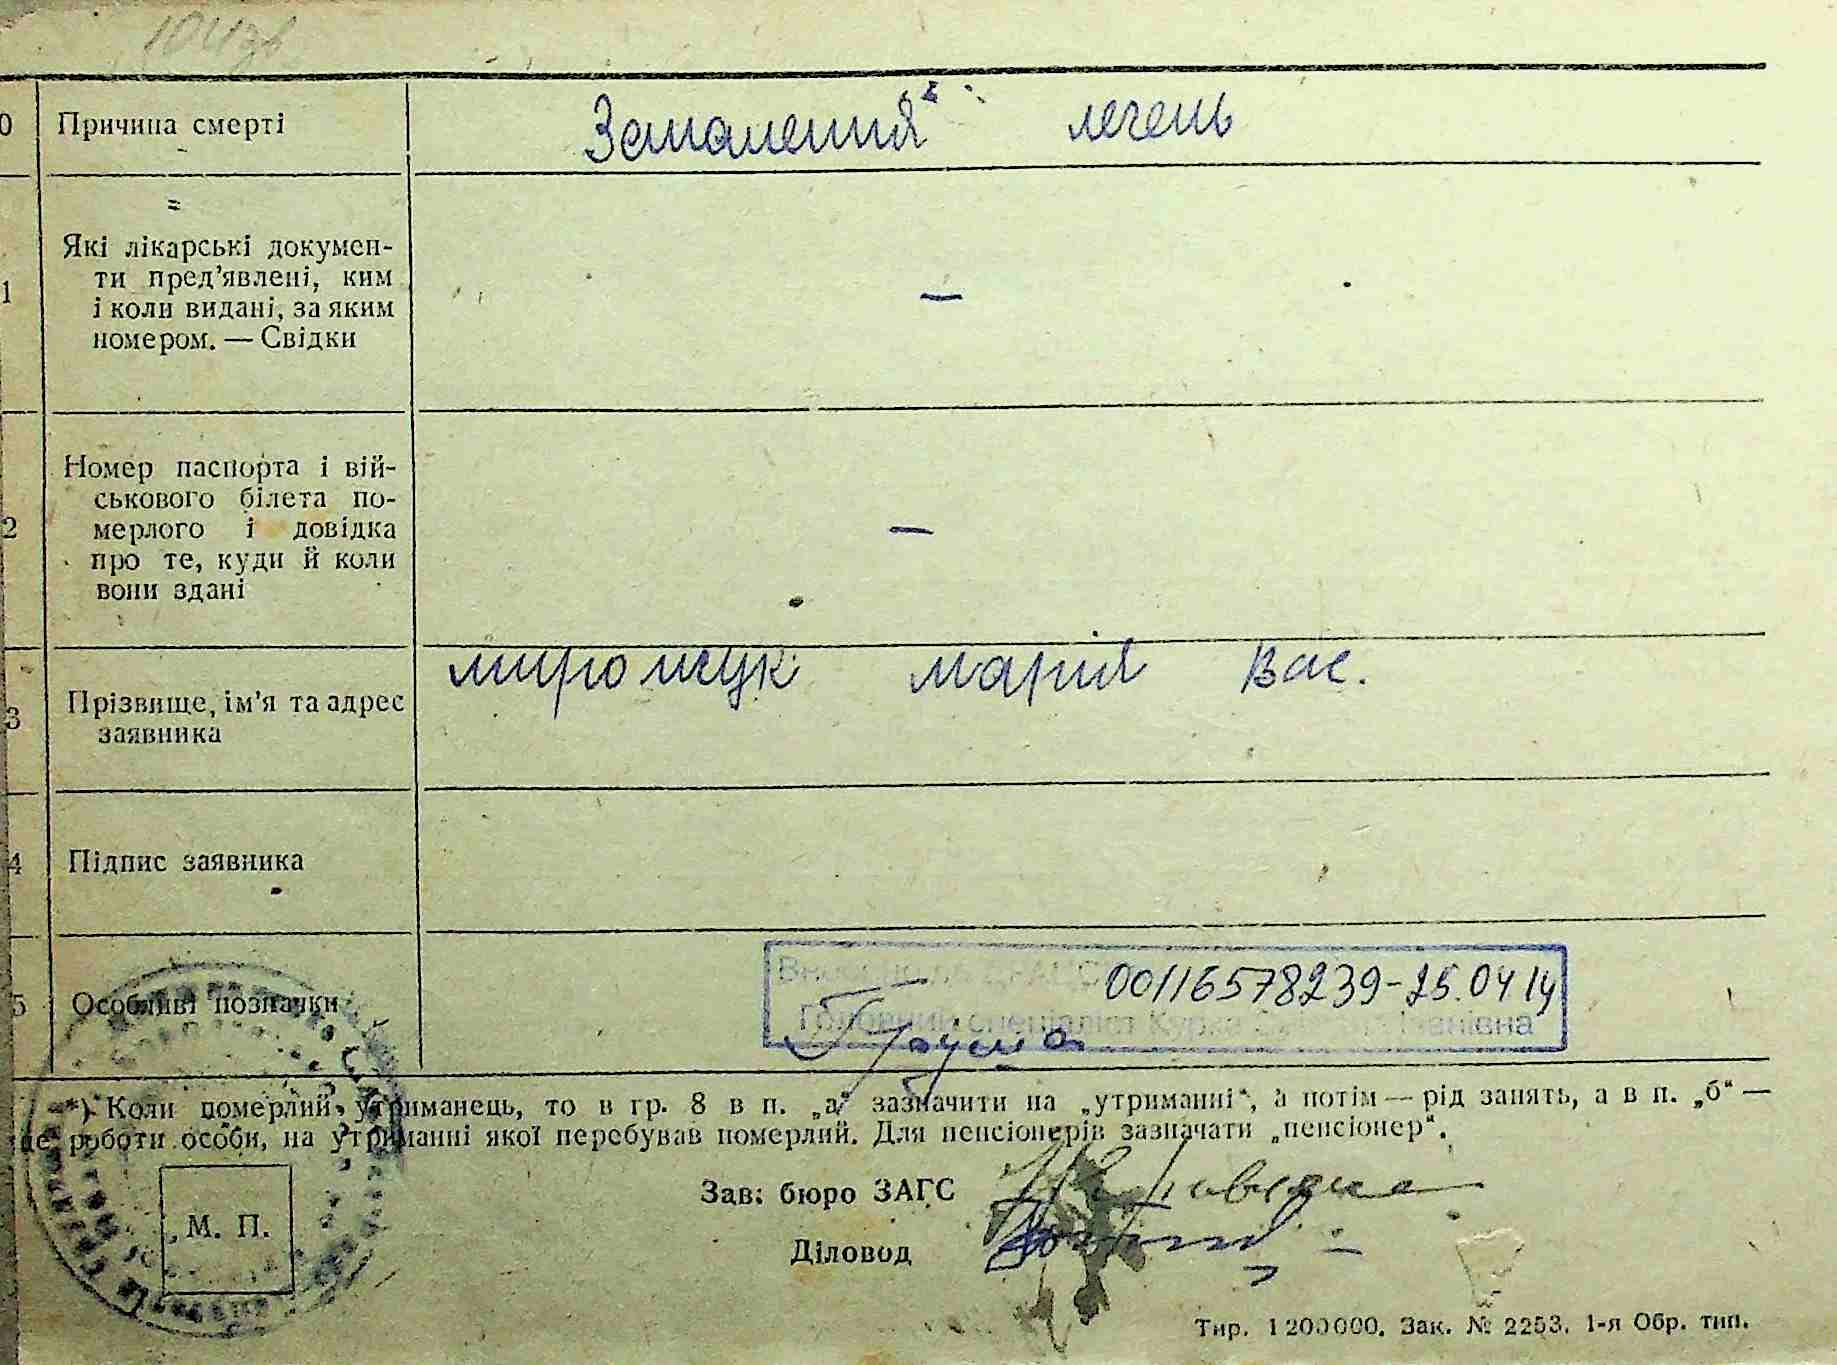 0 Причина смерті Запалення легень
1 Які лікарські докумен-
ти пред’явлені, ким
і коли видані, за яким
номером. — Свідки
—
2 Номер паспорта і вій-
ськового білета по-
мерлого і довідка
про те, куди й коли
вони здані
—
3 Прізвище, ім’я та адрес
заявника
Мирощук Марія Вас.
4 Підпис заявника
5 Особливі позначки
00116578239-25.04 14
Головний спеціаліст
*) Коли померлий утриманець, то в гр. 8 в п. „а“ зазначити на „утриманні“, а потім — рід занять, а в п. „б“ —
це роботи особи, на утриманні якої перебував померлий. Для пенсіонерів зазначати „пенсіонер“.
Зав. бюро ЗАГС
М. П.
Діловод
Тир. 1200000. Зак. № 2253. 1-я Обр. тип.